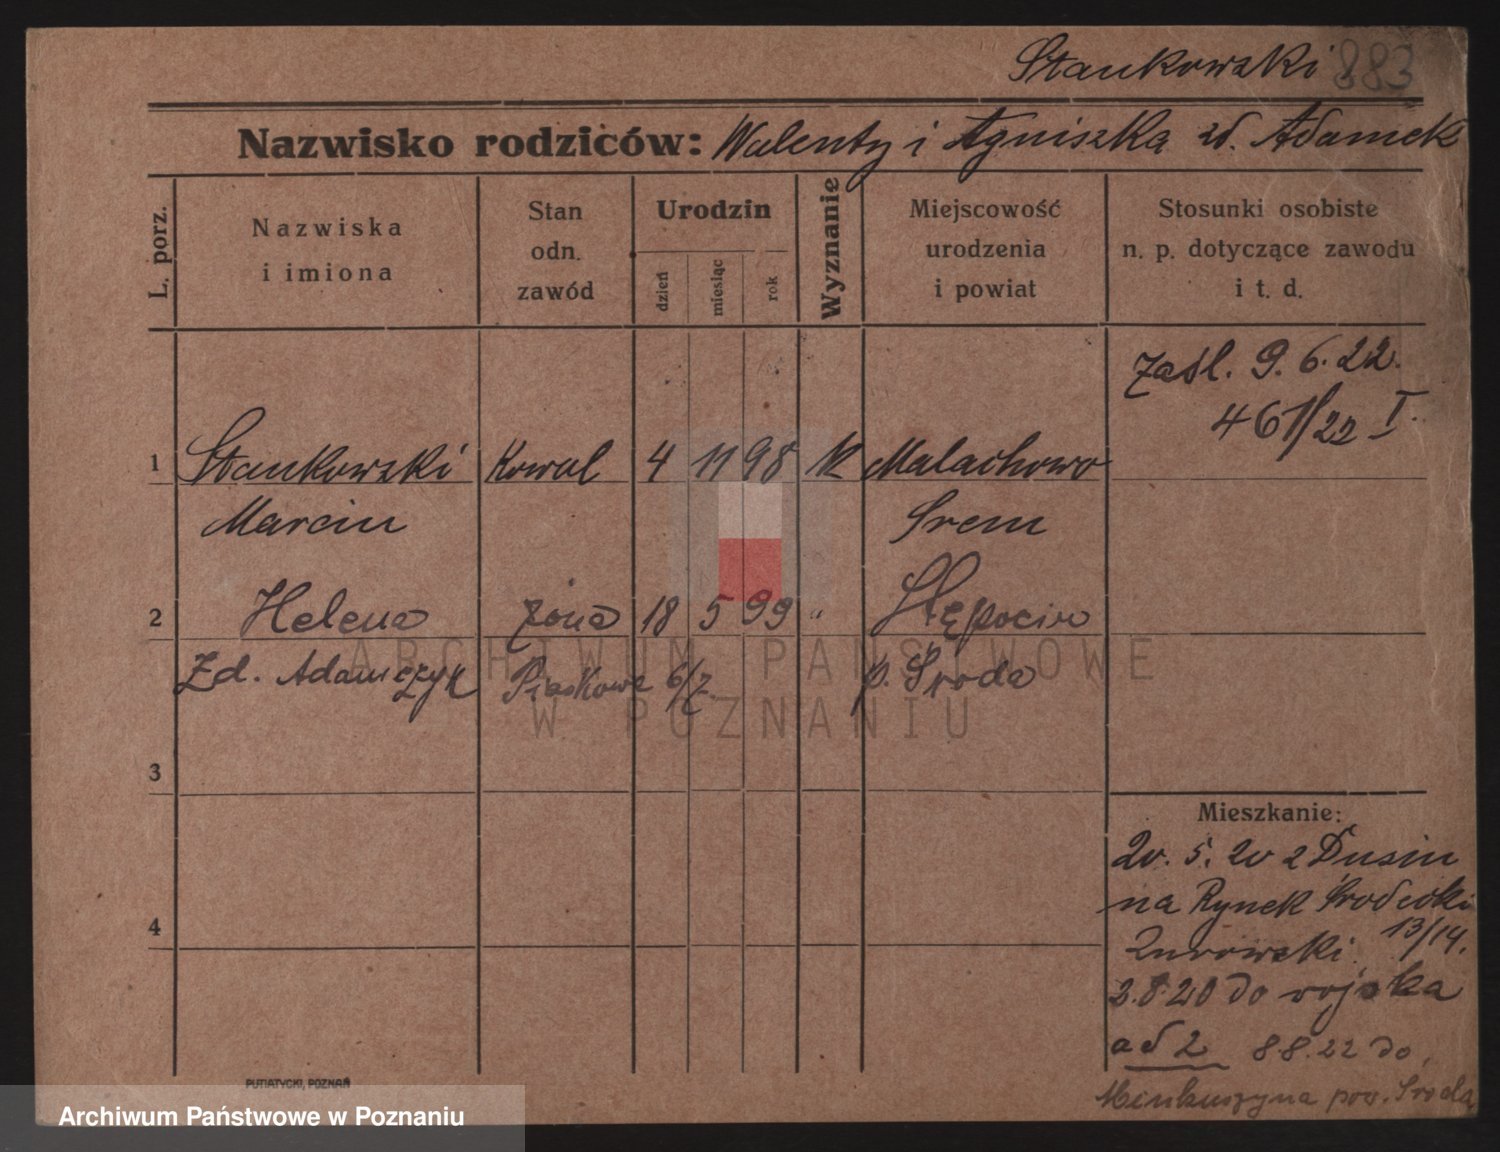 Stankowski 883
Nazwisko rodziców: Walenty i Agniszka zd. Adamek
L. porz.
Nazwiska
i imiona
Stan
odn.
zawód
Urodzin
dzień
miesiąc
rok
Wyznanie
Miejscowość
urodzenia
i powiat
Stosunki osobiste
n. p. dotyczące zawodu
i t. d.
zaśl. 9. 6. 22.
461/22 I.
1 Stankowski Kowal 4 11 98 k Malachowo
Marcin Śrem
2 Helena żona 18 5 99 "
Zd. Adamczyk Piaskowa 6/7. p. Środa
3
4
Mieszkanie:
20. 5. 20 z Dusin
na Rynek Środecki
13/14.
Żurowski
2.8.20 do wojska
ad 2 8 8. 22 do
pow. Środa
PUTIATYCKI, POZNAŃ
ARCHIWUM PAŃSTWOWE
W POZNANIU
Archiwum Państwowe w Poznaniu